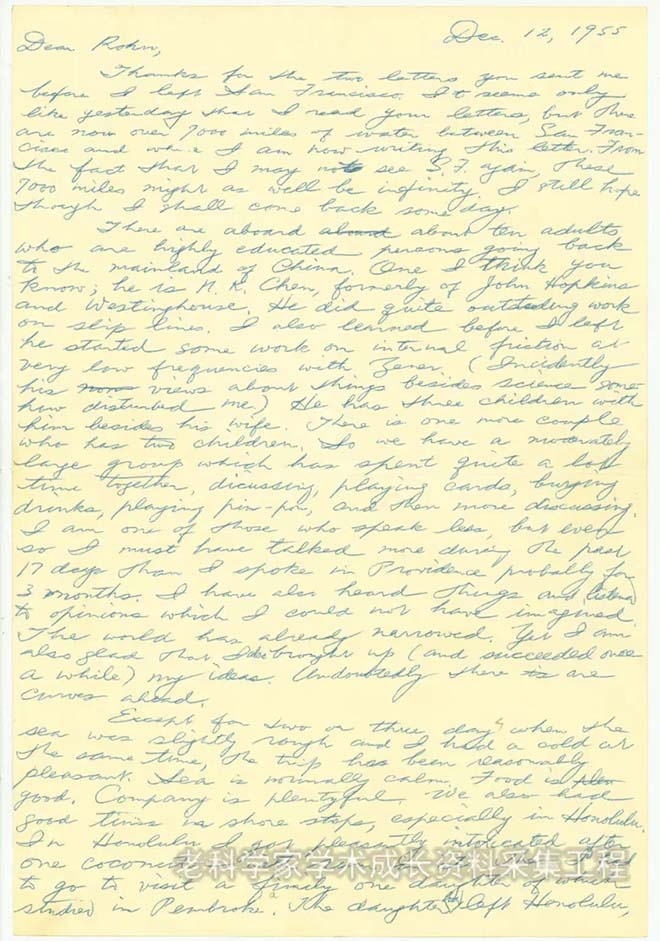 Dec. 12, 1955
Dear Rohn,
Thanks for the two letters you sent me
before I left San Francisco. It seems only
like yesterday that I read your letters, but there
are now over 7000 miles of water between San Fran-
cisco and where I am now writing this letter. From
the fact that I may not see S.F. again, these
7000 miles might as well be infinity. I still hope
though I shall come back some day.
There are aboard aboard about ten adults
who are highly educated persons going back
to the mainland of China. One I think you
know; he is N. K. Chen, formerly of John Hopkins
and Westinghouse. He did quite outstanding work
on slip lines. I also learned before I left
he started some work on internal friction at
very low frequencies with Zener. (Incidently
his views about things besides science some-
how disturbed me.) He has three children with
him besides his wife. There is one more couple
who has two children. So we have a moderately
large group which has spent quite a lot
time together, dicussing, playing cards, buying
drinks, playing pin-pon, and then more discussing.
I am one of those who speak less, but even
so I must have talked more during the past
17 days than I spoke in Providence probably for
3 months. I have also heard things and listened
to opinions which I could not have imagined.
The world has already narrowed. Yet I am
also glad that I brought up (and succeeded once
a while) my ideas. Undoubtedly there are
curves ahead.
Except for two or three days when the
sea was slightly rough and I had a cold at
the same time, the trip has been reasonably
pleasant. Sea is normally calm. Food is
good. Company is plentyful. We also had
good times in shore stops, especially in Honolulu.
In Honolulu I got pleasantly intoxicated after
one coconut
老科学家学术成长资料采集工程
to go to visit a family one daughter of which
studied in Pembroke. The daughter left Honolulu,